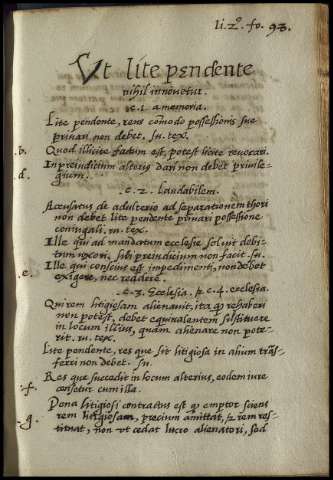 li. 2º. fo. 93.
Vt lite pendente
nihil innouetur.
.c. 1. a memoria.
Lite pendente, reus cõmodo possessionis sue
priuari non debet. su. tex.
b. Quod illicite factum est, potest licite reuocari.
d. In preiuditium alterius dari non debet priuile-
gium.
.c. 2. laudabilem.
Accusatus de adulterio ad separationem thori
non debet lite pendente priuari possessione
coniugali. su. tex.
Ille qui ad mandatum ecclesie soluit debi-
tum uxori, sibi preiudicium non facit. su.
.e. Ille qui conscius est impedimenti, non debet
exigere, nec reddere.
.c. 3. Ecclesia. &c. 4. ecclesia.
Qui rem litigiosam alienauit, ita q rehaberi
non potest, debet equiualentem substituere
in locum illius, quam alienare non pote-
rit. su. tex.
Lite pendente, res que sit litigiosa in alium trãs-
ferri non debet. su.
.f. Res que succedit in locum alterius, eodem iure
consetur cum illa.
.g. Pena litigiosi contractus est q emptor sciens
rem litigiosam, precium amittat, & rem res-
tituat, non vt cedat lucro alienatori, sed